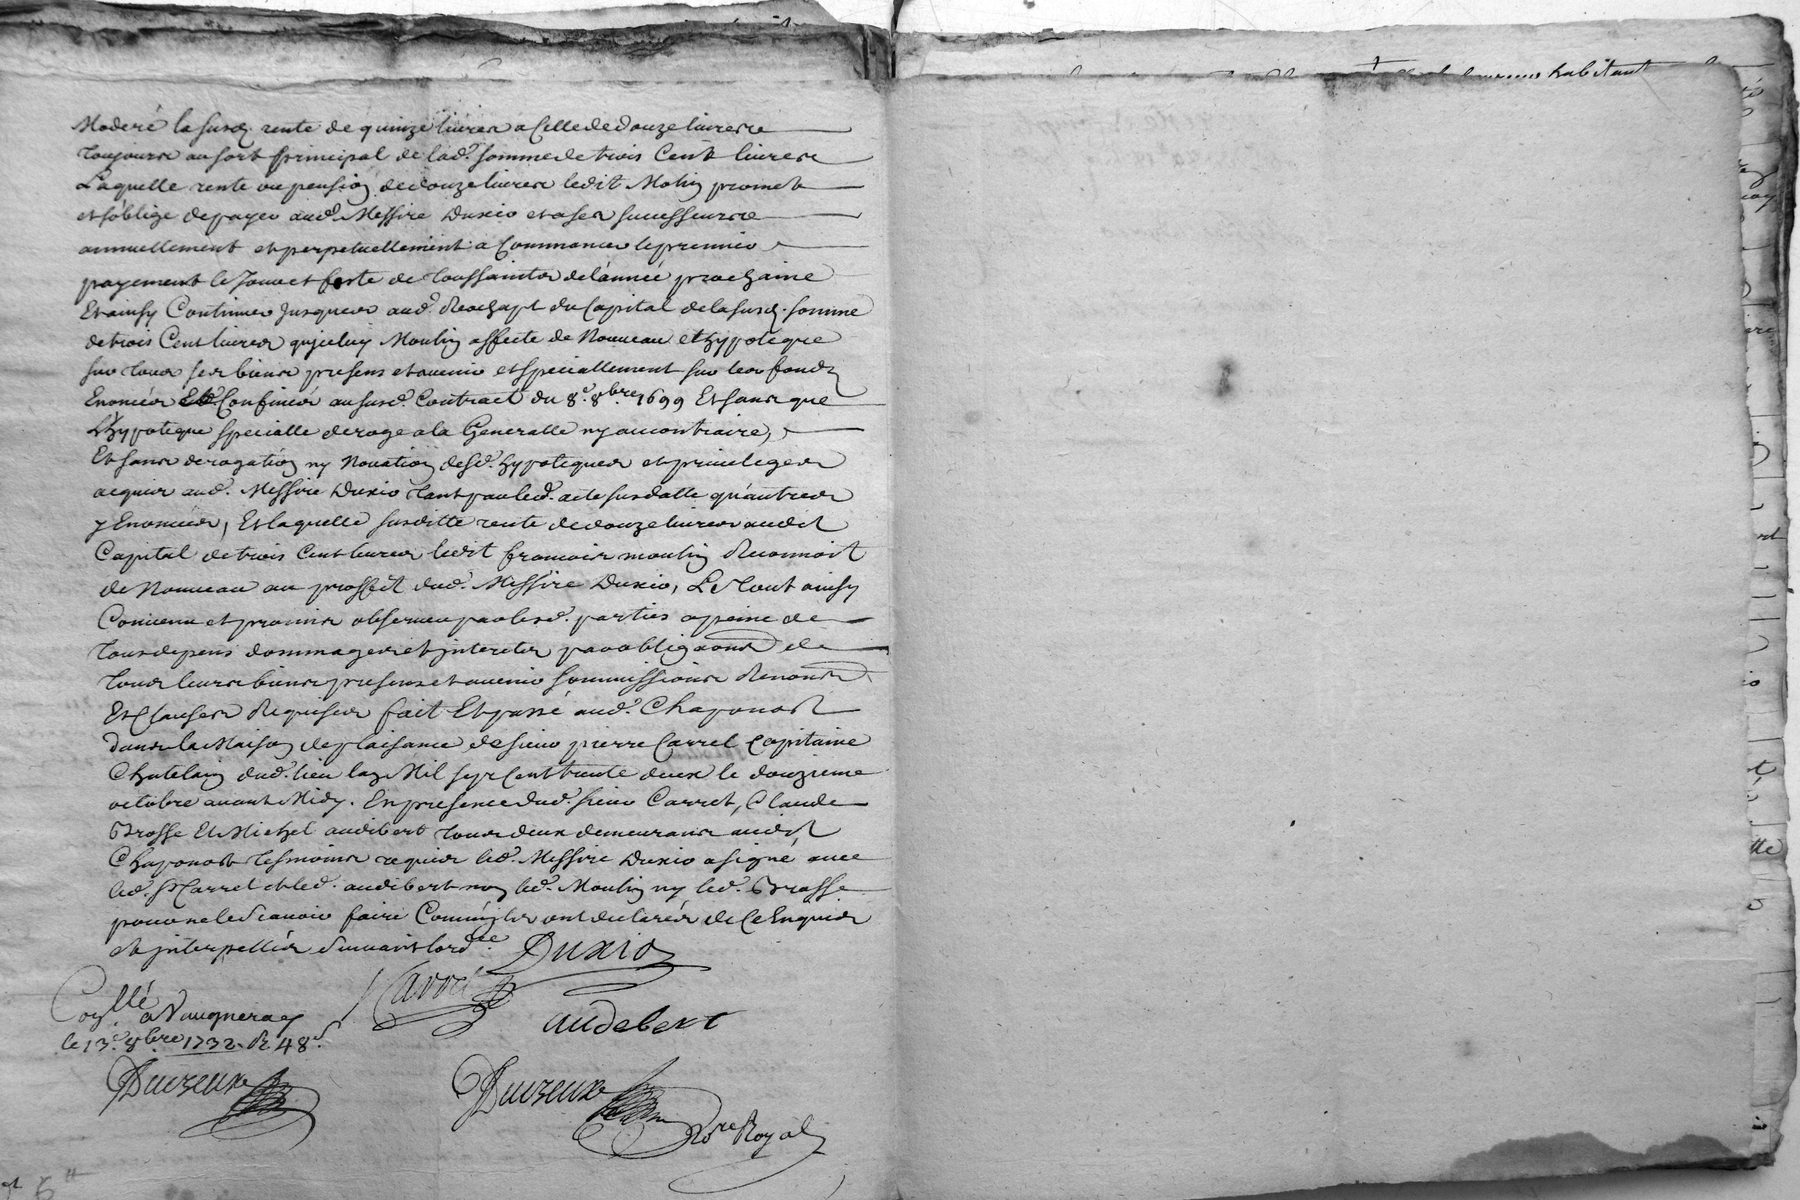 habitant
Moderé la susd. rente de quinze livres a Celle de douze livres
toujours au sort principal de lad. somme de trois Cent livres
Laquelle rente ou pension de douze livres ledit Molin promet
et s'oblige de payer aud. Messire Duxio et a ses successeurs
annuellement et perpetuellement a Commancer le premier
payement le Jour et feste de toussaints de l'année prochaine
Et ainsy Continuer jusques au d. Reachapt du Capital de la susd. somme
de trois Cent livres qu'jceluy Moulin affecte de Nouveau et hypoteque
sur tous ses biens presens et avenir et speciallement sur les fonds
Enoncés Confinés au susd. Contract du 8e. 8bre 1699 Et sans que
L'hypoteque specialle deroge a la Generalle ny au contraire,
Et sans derogation ny Novation desd. hypoteques et privileges
acquis aud. Messire Duxio tant par led. acte susdatté qu'autres
y Enoncés, Et laquelle susditte rente de douze livres audit
Capital de trois Cent livres ledit francois moulin Reconnoit
de Nouveau au proffit dud. Messire Duxio, Le tout ainsy
Convenu et promis observer par lesd. parties a peine de
tous depens dommages et jnterets par obligaons de
tous leurs biens presens et avenir soummissions Renons
Et Clauses Requises fait Et passé aud. Chaponost
dans la Maison de plaisance de sieur pierre Carrel Capitaine
Chatelain dud. lieu Lan Mil sept Cent trente deux le douzieme
octobre avant Midy. En presence dud. sieur Carret, Claude
Brosse Et Michel audibert tous deux demeurans audit
Chaponost tesmoins requis led. Messire Duxio a signé avec
led. Sr Carret et led. audibert non led. Moulin ny led. Brosse
pour ne le sçavoir faire Comme jls ont declarés de Ce Enquis
et jnterpellés suivant lordce
Duxio
Carret
audebert
Conllé a Vaugneray
le 13e. 8bre 1732. R. 48s
Duvzeuxe
Duvzeuxe
Nore Royal